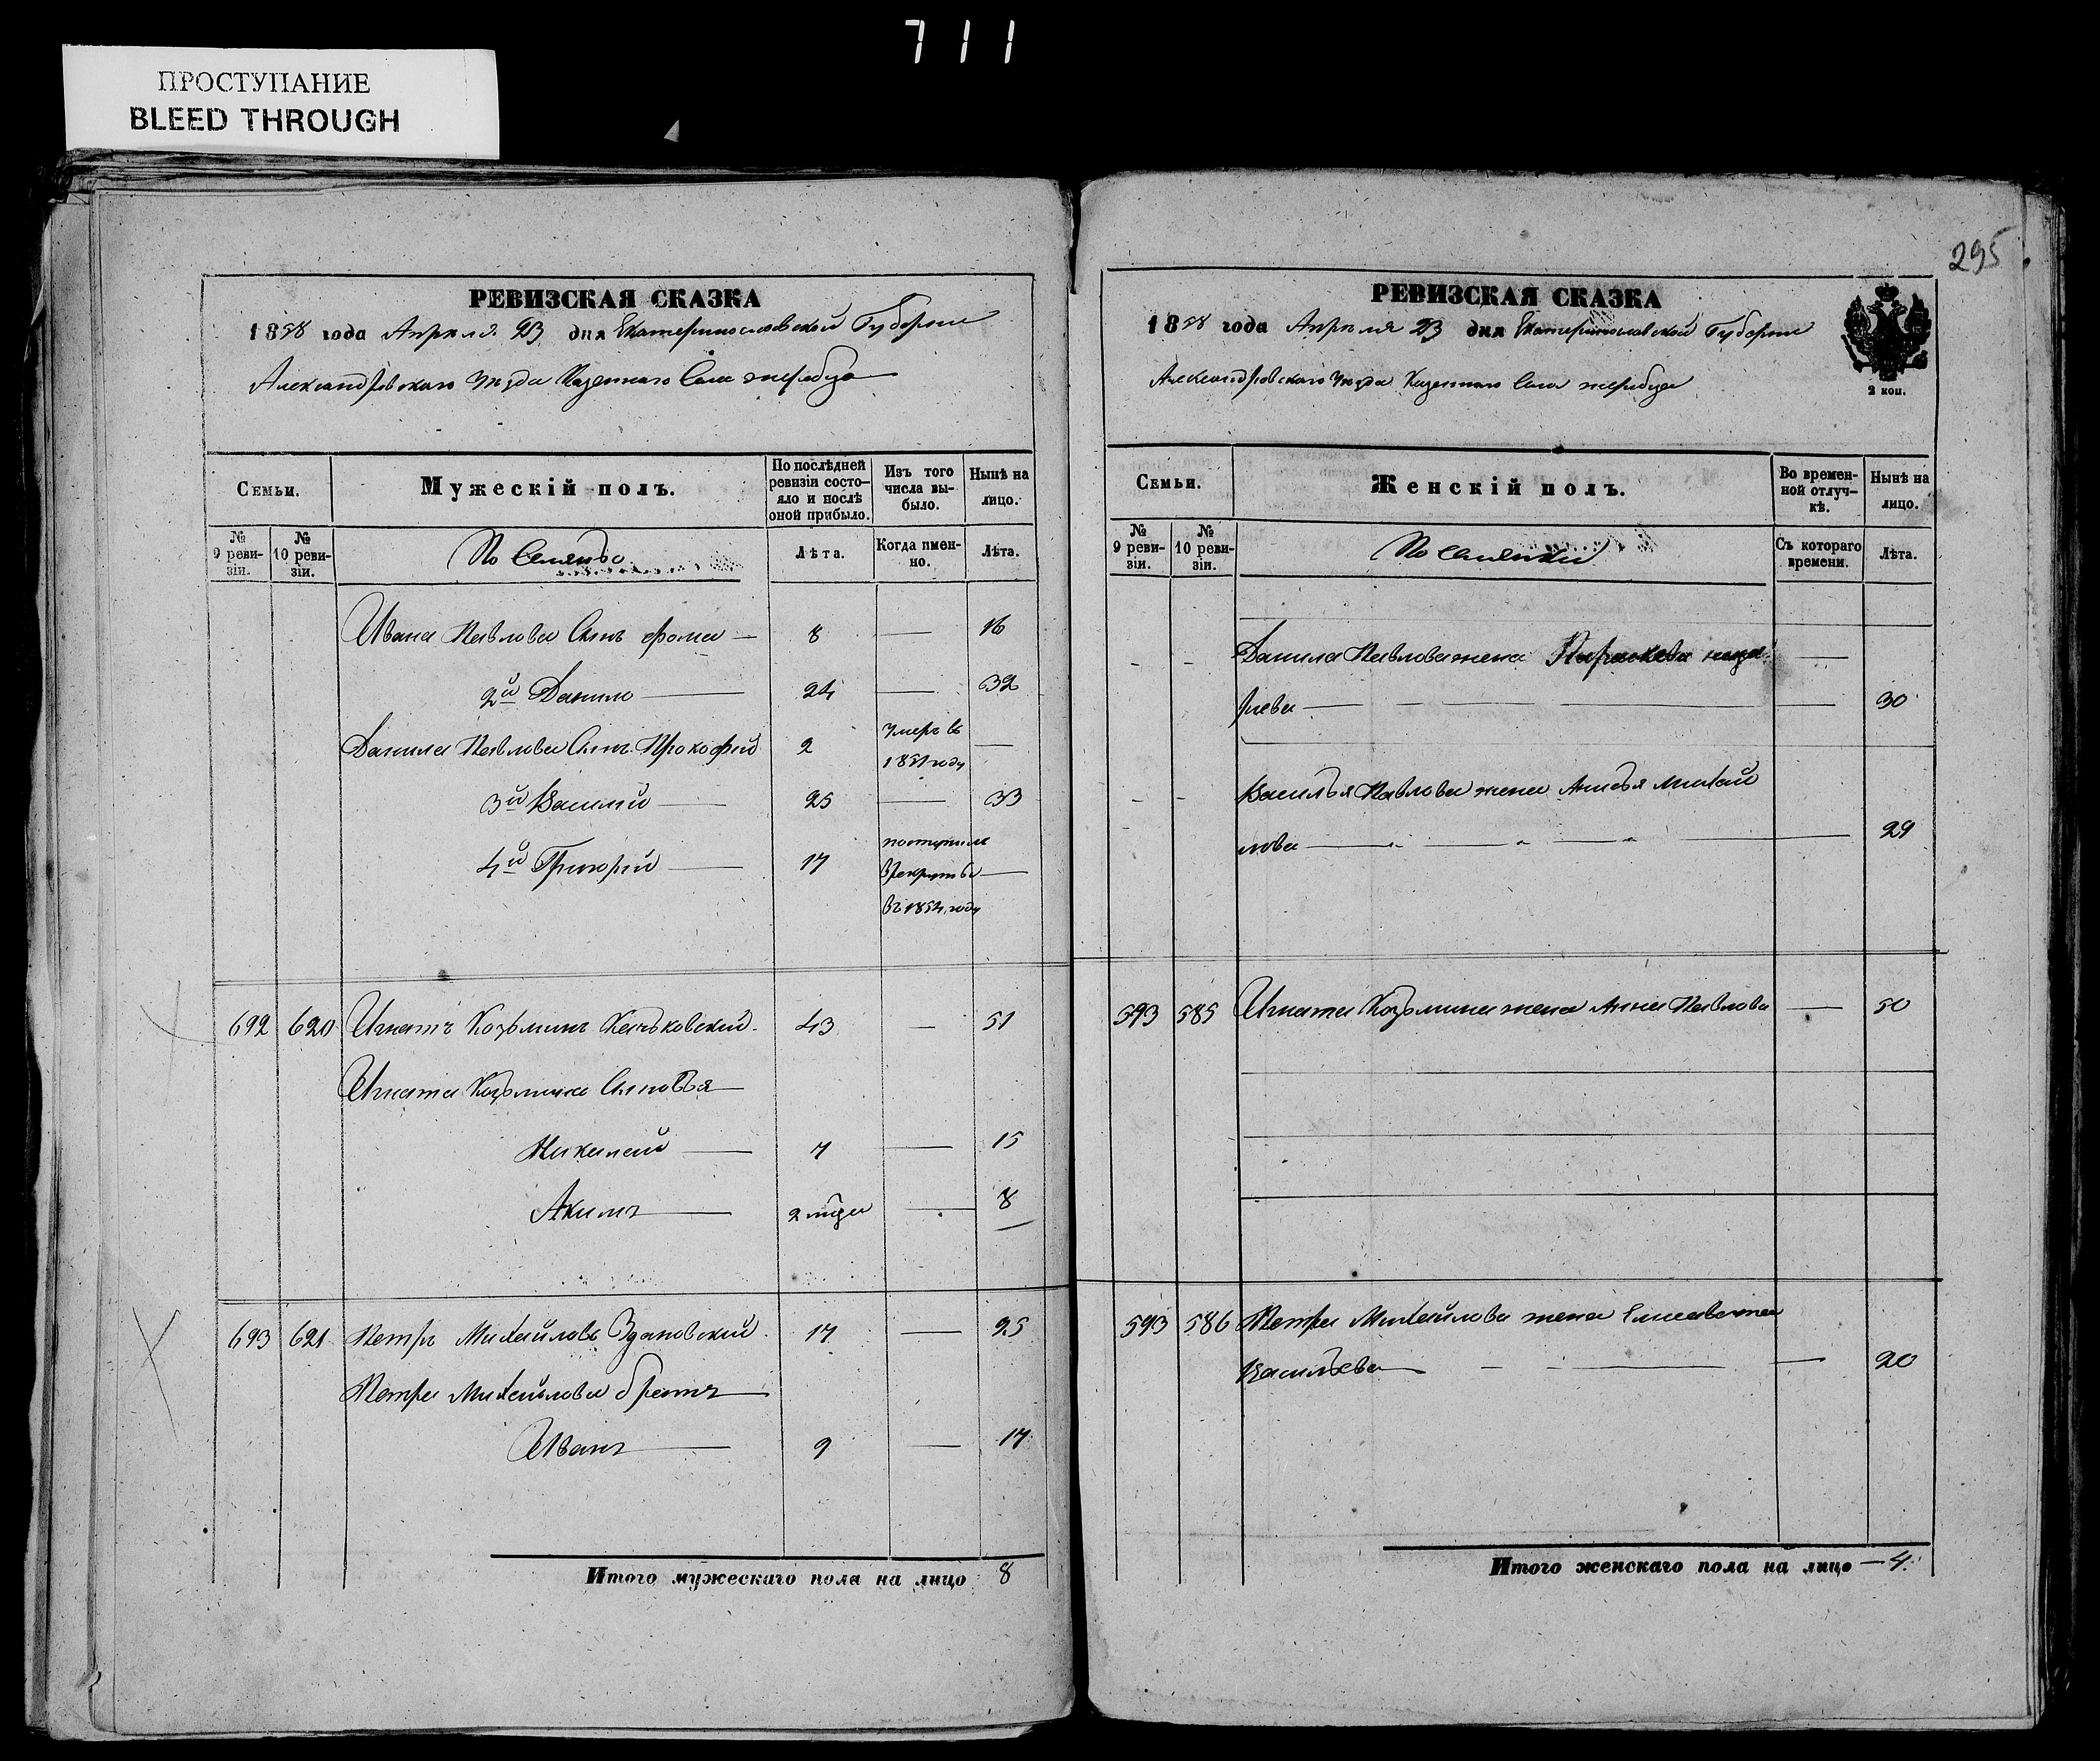 711
ПРОСТУПАНИЕ
BLEED THROUGH
295
РЕВИЗСКАЯ СКАЗКА
1858 года Апреля 23 дня Екатеринославской Губернии
Александровскаго Уезда Казеннаго Села Жеребца
Семьи.
Мужескій полъ.
По послѣдней ревизіи состо-
яло и послѣ
оной прибыло.
Изъ того
числа вы-
было.
Нынѣ на
лицо.
№
9 реви-
зіи.
№
10 реви-
зіи.
Лѣта.
Когда имен-
но.
Лѣта.
Ивана Павлова Сынъ Фома — 8 — 16
2й Данило — 24 — 32
Данила Павлова Сынъ Прокофий 2 Умеръ въ —
1851 году
3й Василий — 25 — 33
4й Григорий — 17 поступилъ
в рекруты —
въ 1854 году
692 620 Игнатъ Козьминъ 43 — 51
Игната Козьмина Сыновья
Николай — 7 — 15
Акимъ — — 8
693 621 Петръ Михайловъ Здановский 17 — 25
Петра Михайлова братъ —
Иванъ — 9 — 17
Итого мужескаго пола на лицо 8
РЕВИЗСКАЯ СКАЗКА
1858 года Апреля 23 дня Екатеринославской Губернии
Александровскаго Уезда Казеннаго Села Жеребца
2 коп.
Семьи.
Женскій полъ.
Во времен-
ной отлуч-
кѣ.
Нынѣ на
лицо.
№
9 реви-
зіи.
№
10 реви-
зіи.
Съ котораго
времени.
Лѣта.
Данила Павлова жена Параскева —
30
Василья Павлова жена Михай
лова — 29
593 585 Игната Козьмина жена Анна Павлова — 50
593 586 Петра Михайлова жена Елисавета
Васильева — 20
Итого женскаго пола на лицо — 4.